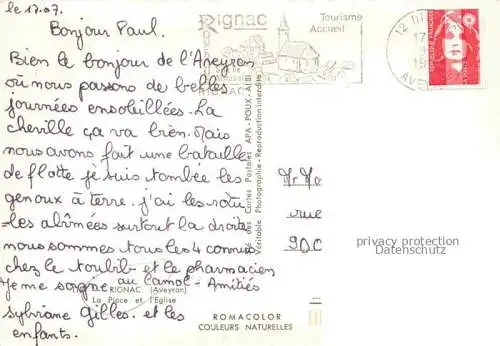 le 17.07.
Bonjour Paul.
Bien le bonjour de l'Aveyron
où nous passons de belles
journées ensoleillées. La
cheville ça va bien. Mais
nous avons fait une bataille
de flotte je suis tombée les
genoux à terre. j'ai les rotu
-les abîmées surtout la droite
nous sommes tous les 4 connus
chez le toubib et le pharmacien
au camol - Amitiés
sylviane Gilles. et les
enfants.
RIGNAC (Aveyron)
La Place et l'Eglise
Rignac
Tourisme
Accueil
RIGNAC
12
17
19
AVE
des Cartes Postales APA - POUX - ALBI
Véritable Photographie - Reproduction interdite
Mr
rue
900
privacy protection
Datenschutz
ROMACOLOR
COULEURS NATURELLES